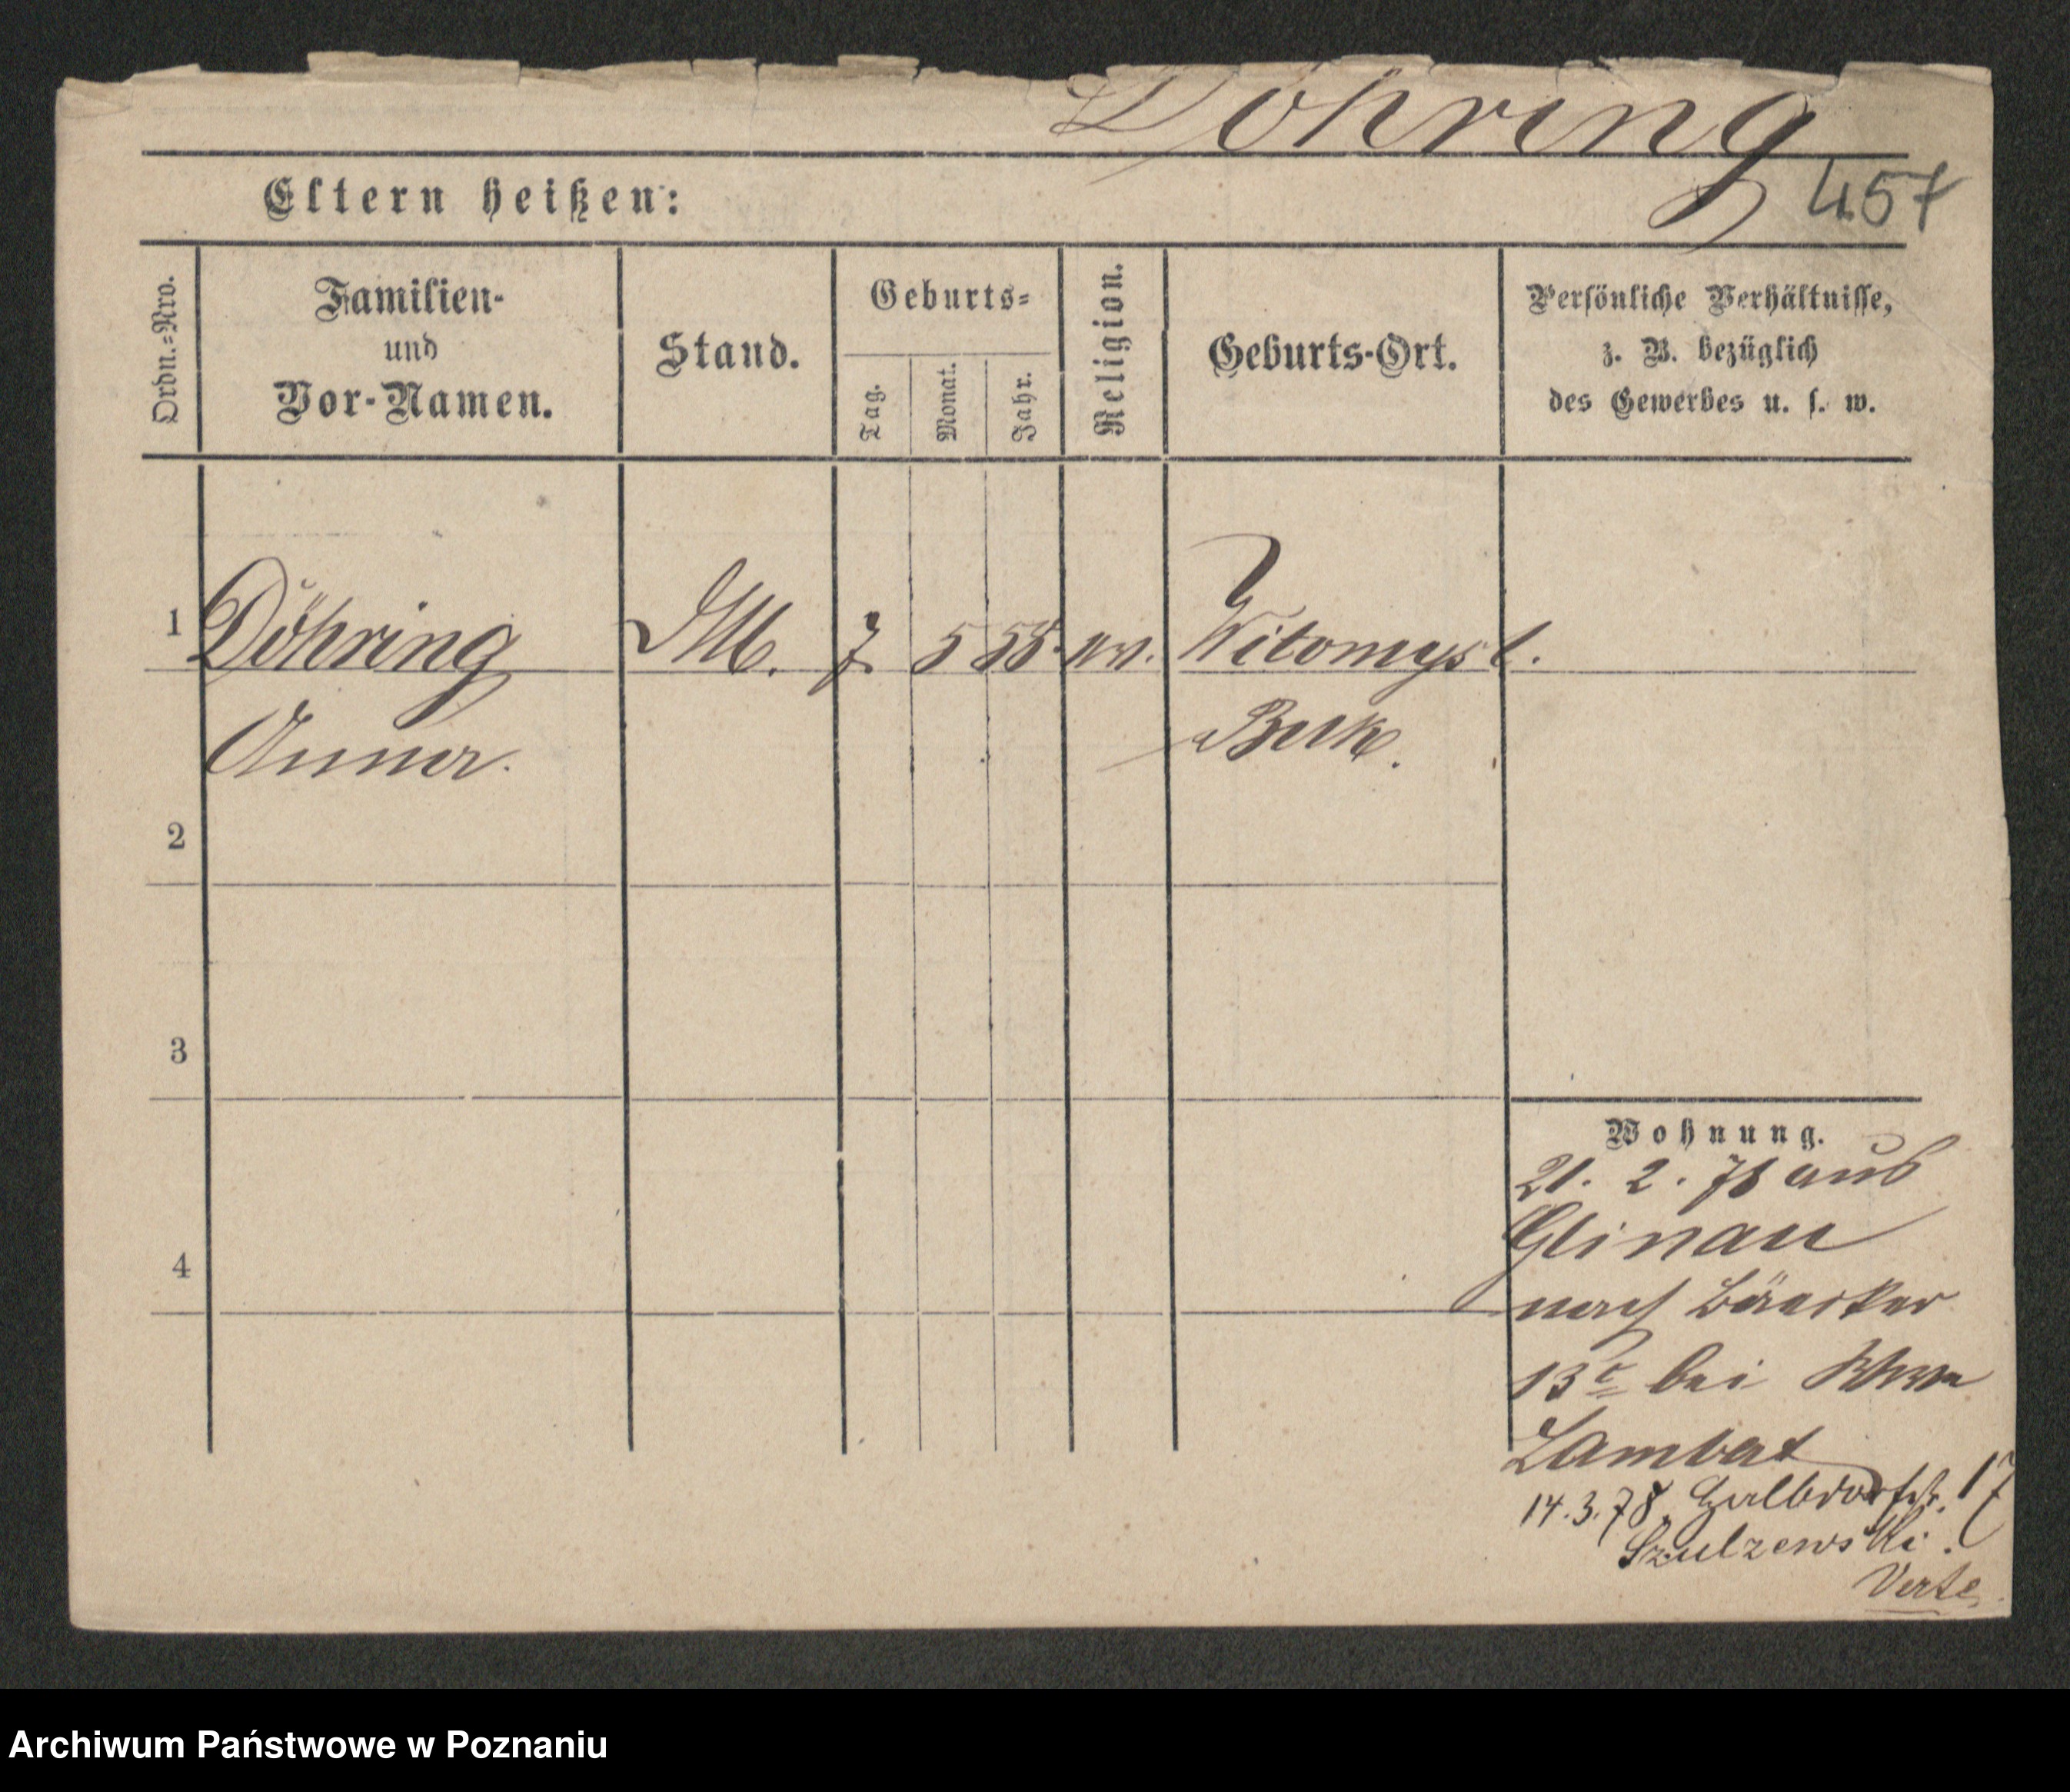 Döhring
457
Eltern heißen:
Ordn.-Nro.
Familien-
und
Vor-Namen.
Stand.
Geburts-
Tag.
Monat.
Jahr.
Religion.
Geburts-Ort.
Persönliche Verhältnisse,
z. B. bezüglich
des Gewerbes u. s. w.
1 Döhring 7 5 55. Witomysl.
Anna. Buk.
2
3
4
Wohnung.
21. 2. 78 aus
Glinau
nach Bäcker
13c bei Wwe
Lambert
14.3.78. Halbdorfstr. 17
Szulzewski.
Verte
Archiwum Państwowe w Poznaniu